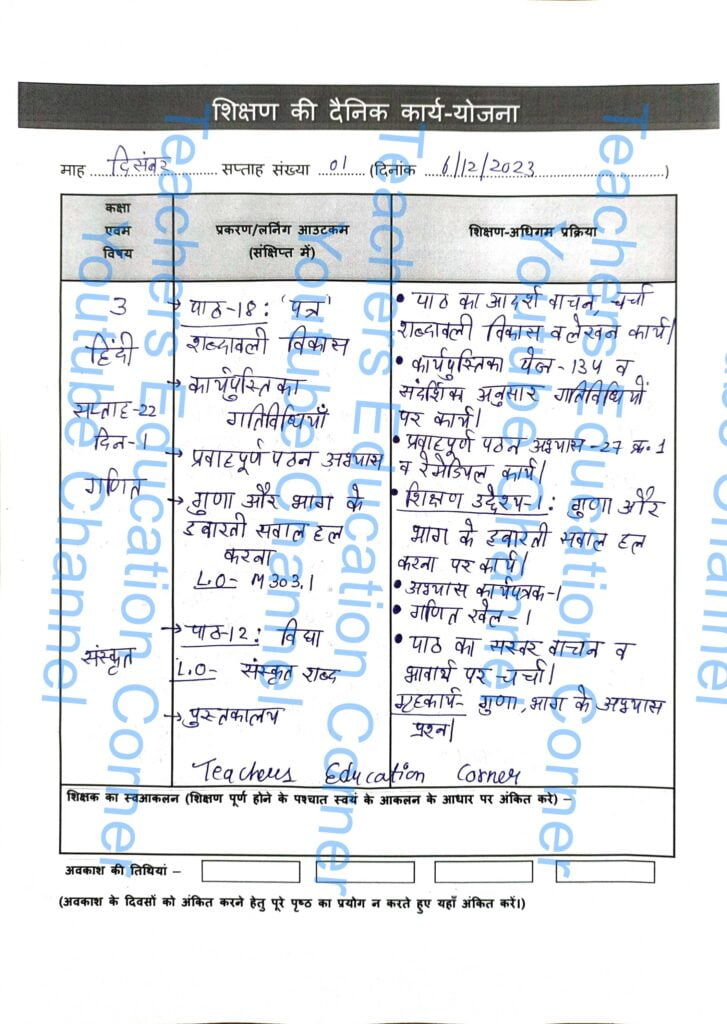 शिक्षण की दैनिक कार्य-योजना
माह ....दिसंबर........... सप्ताह संख्या ...01.... (दिनांक .....6/12/2023...............................)
कक्षा
एवम
विषय
प्रकरण/लर्निंग आउटकम
(संक्षिप्त में)
शिक्षण-अधिगम प्रक्रिया
3
हिंदी
सप्ताह-22
दिन-1
गणित
संस्कृत
→ पाठ-18: 'पत्र'
शब्दावली विकास
→ कार्यपुस्तिका
गतिविधियाँ
→ प्रवाहपूर्ण पठन अभ्यास
→ गुणा और भाग के
इबारती सवाल हल
करना
L.O- M303.1
→ पाठ-12: विद्या
L.O- संस्कृत शब्द
→ पुस्तकालय
• पाठ का आदर्श वाचन, चर्चा
शब्दावली विकास व लेखन कार्य।
• कार्यपुस्तिका पेज-134 व
संदर्शिका अनुसार गतिविधियों
पर कार्य।
• प्रवाहपूर्ण पठन अभ्यास-27 क्र.1
व रेमेडियल कार्य।
• शिक्षण उद्देश्य-1: गुणा और
भाग के इबारती सवाल हल
करना पर कार्य।
• अभ्यास कार्यपत्रक-1
• गणित खेल-1
• पाठ का सस्वर वाचन व
भावार्थ पर चर्चा।
गृहकार्य- गुणा, भाग के अभ्यास
प्रश्न।
Teachers Education Corner
शिक्षक का स्वआकलन (शिक्षण पूर्ण होने के पश्चात स्वयं के आकलन के आधार पर अंकित करे) –
अवकाश की तिथियां –
(अवकाश के दिवसों को अंकित करने हेतु पूरे पृष्ठ का प्रयोग न करते हुए यहाँ अंकित करें।)
Teachers Education Corner
Youtube Channel
Teachers Education Corner
Youtube Channel
Teachers Education Corner
Youtube Channel